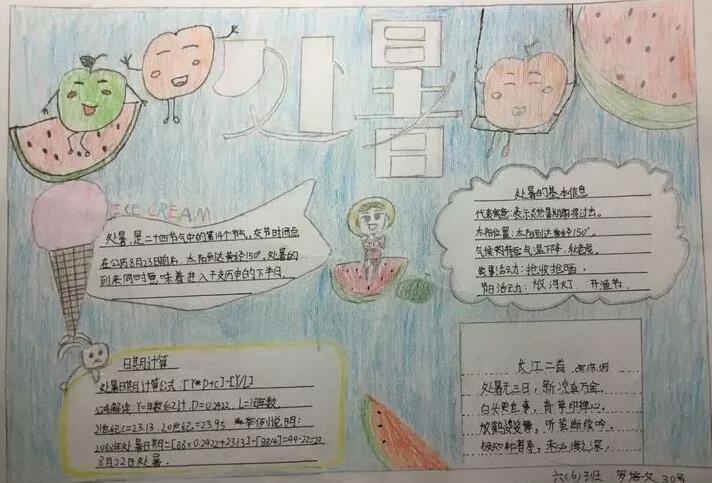 处暑
ICE CREAM
处暑,是二十四节气中的第14个节气,交节时间点
在公历8月23日前后,太阳到达黄经150°。处暑的
到来同时意味着进入干支历申的下半月
处暑的基本信息
太阳位置:太阳到达黄经150°。
气候特
农事活动:抢收抢晒。
节日活动:放河灯、开渔节。
日期计算
处暑日期计算公式:[Y*D+C]-[Y/L]
公式解读:Y=年数后2位,D=0.2422,L=闰年数,
21世纪C=23.13,20世纪C=23.95 举例说明:
2088年处暑日期=[88x0.2422+23.13]-[88/4]=44-22=22
8月22日处暑。
长江二首
处暑无三日,新凉直万金。
白头更世事,青草印禅心。
放鹤婆娑舞,听蛩断续吟。
极知仁者寿,未必海之深。
六(6)班 罗 文 30号